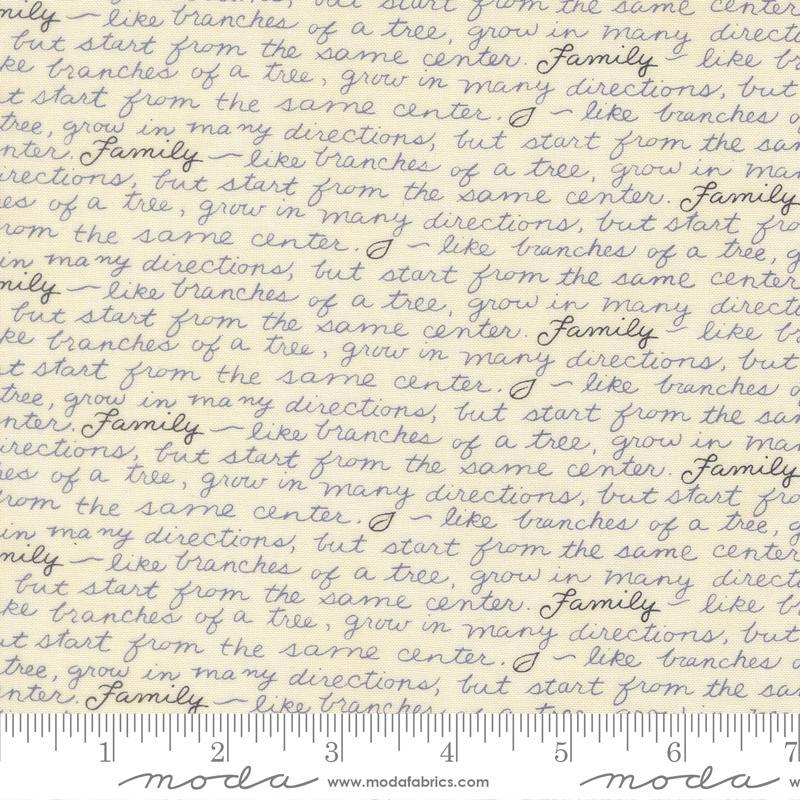 mily – like branches of a tree, grow in many directi
but start from the same center. Family – like br
ke branches of a tree, grow in many directions, but
t start from the same center. – like branches o
tree, grow in many directions, but start from the sam
nter. Family – like branches of a tree, grow in man
irections, but start from the same center. Family
es of a tree, grow in many directions, but start fro
rom the same center. – like branches of a tree, g
in many directions, but start from the same center
mily – like branches of a tree, grow in many directi
but start from the same center. Family – like br
ke branches of a tree, grow in many directions, but
t start from the same center. – like branches o
tree, grow in many directions, but start from the sam
nter. Family – like branches of a tree, grow in man
irections, but start from the same center. Family
hes of a tree, grow in many directions, but start fro
from the same center. – like branches of a tree, g
in many directions, but start from the same center
mily – like branches of a tree, grow in many directi
but start from the same center. Family – like br
ke branches of a tree, grow in many directions, but
ut start from the same center. – like branches o
tree, grow in many directions, but start from the sam
nter. Family – like branches
1 2 3 4 5 6 7
moda www.modafabrics.com moda w